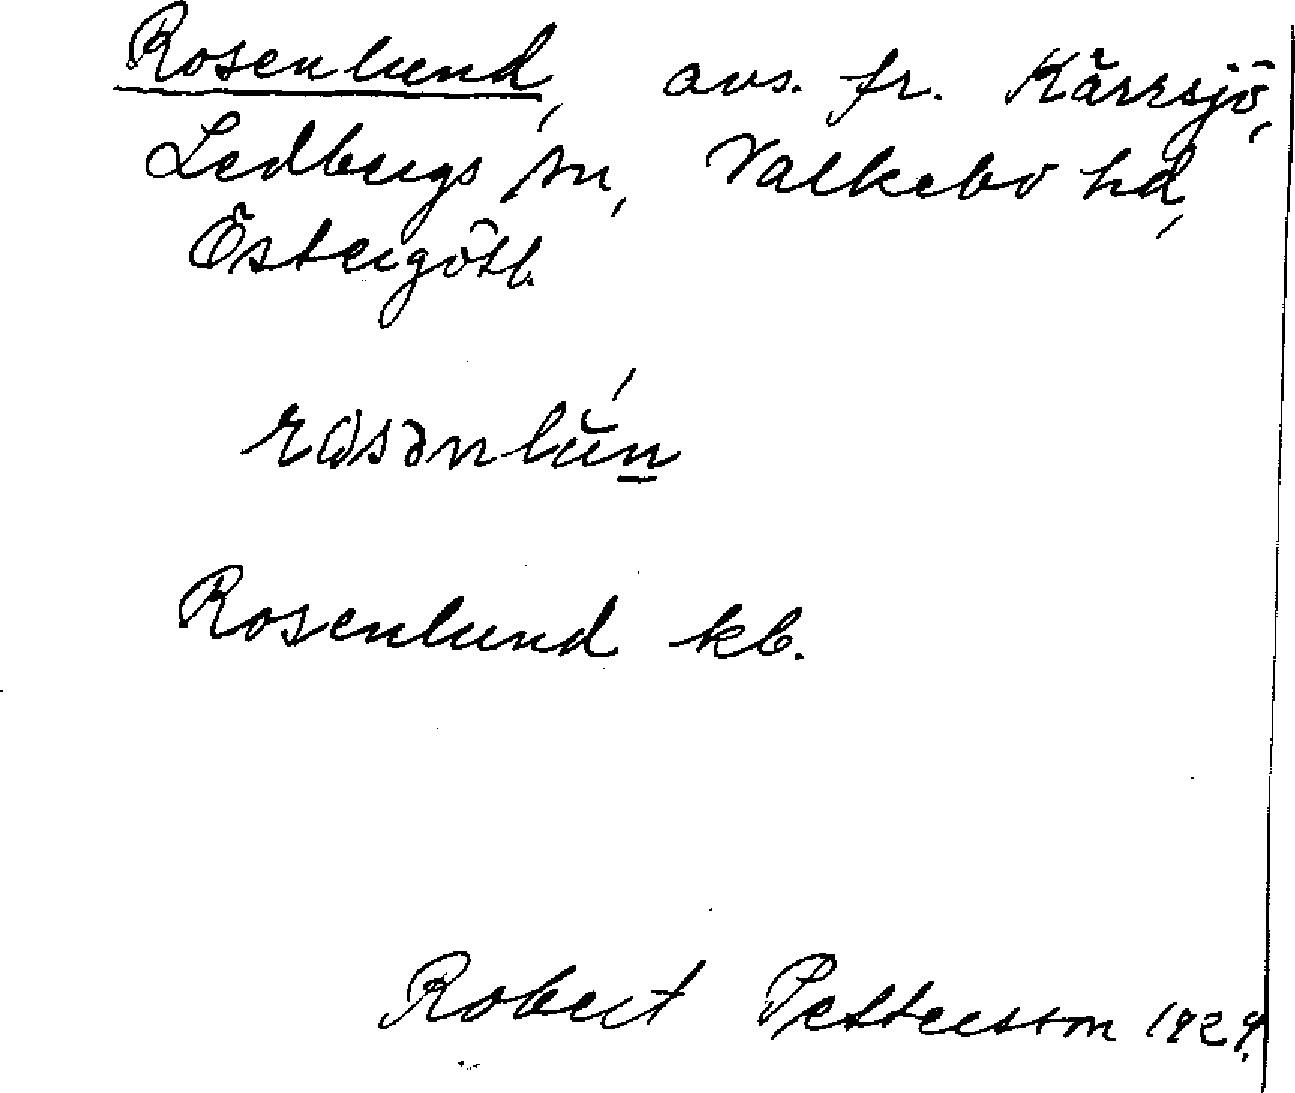 Rosenlund, avs. fr. Kärrsjö,
Ledbergs sn, Valkebo hd,
Östergötl.
rosənlún
Rosenlund kb.
Robert Pettersson 1929.